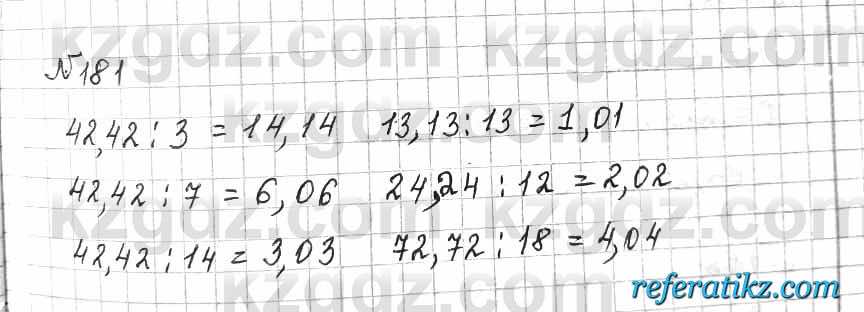 kzgdz.com kzgdz.com
№181
42,42 : 3 = 14,14 13,13 : 13 = 1,01
42,42 : 7 = 6,06 24,24 : 12 = 2,02
42,42 : 14 = 3,03 72,72 : 18 = 4,04
referatikz.com